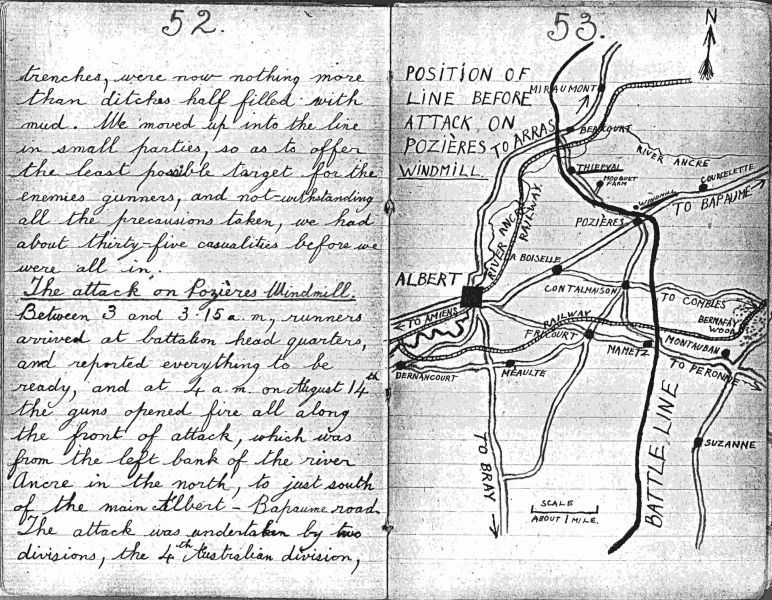 52.
trenches, were now nothing more
than ditches half filled with
mud. We moved up into the line
in small parties, so as to offer
the least possible target for the
enemies gunners, and not-withstanding
all the precausions taken, we had
about thirty-five casualities before we
were all in.
The attack on Pozières Windmill.
Between 3 and 3.15 a.m, runners
arrived at battalion head quarters,
and reported everything to be
ready, and at 4 a.m. on August 14th
the guns opened fire all along
the front of attack, which was
from the left bank of the river
Ancre in the north, to just south
of the main Albert - Bapaume road.
The attack was undertaken by two
divisions, the 4th Australian division,
53.
N
POSITION OF
LINE BEFORE
ATTACK, ON
POZIÈRES
WINDMILL.
MIRAUMONT
TO ARRAS
BEACOURT
RIVER ANCRE
THIEPVAL
MOUQUET
FARM
COURCELETTE
WINDMILL
TO BAPAUME
POZIÈRES
RIVER ANCRE
RAILWAY.
LA BOISELLE
ALBERT
CONTALMAISON
TO COMBLES
BERNAFAY
WOOD
TO AMIENS
RAILWAY
FRICOURT
MAMETZ
MONTAUBAN
TO PERONNE
DERNANCOURT
MÉAULTE
TO BRAY
BATTLE LINE
SUZANNE
SCALE
ABOUT 1 MILE.